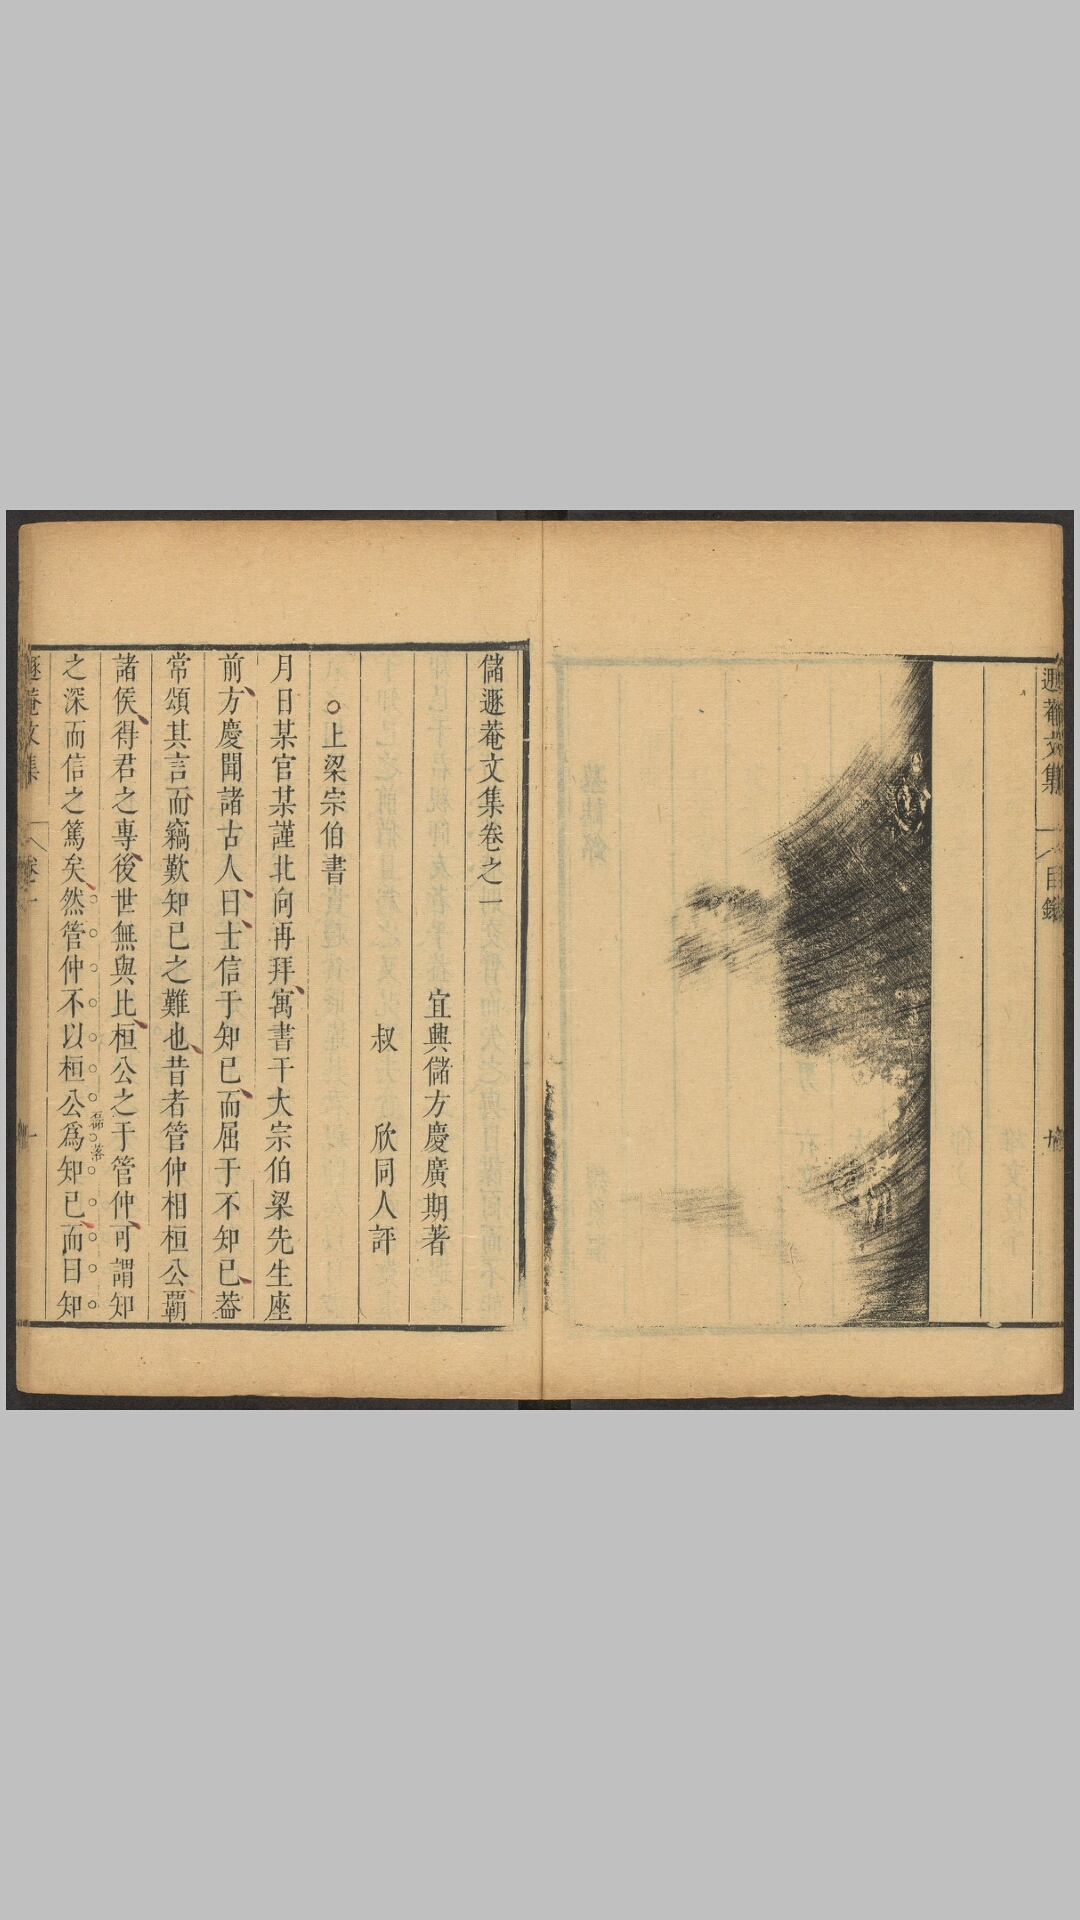 儲遯菴文集卷之一
宜興儲方慶廣期著
叔 欣同人評
○上梁宗伯書
月日某官某謹北向再拜寓書干大宗伯梁先生座
前方慶聞諸古人曰士信于知已而屈于不知已葢
常頌其言而竊歎知已之難也昔者管仲相桓公覇
諸侯得君之專後世無與比桓公之于管仲可謂知
磊落
之深而信之篤矣然管仲不以桓公爲知已而曰知
遯菴文集 卷一 一